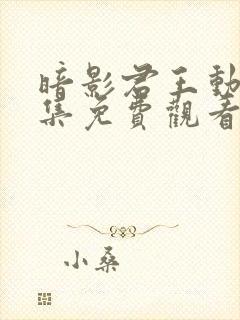 暗影君王動
集免費觀看
小桑